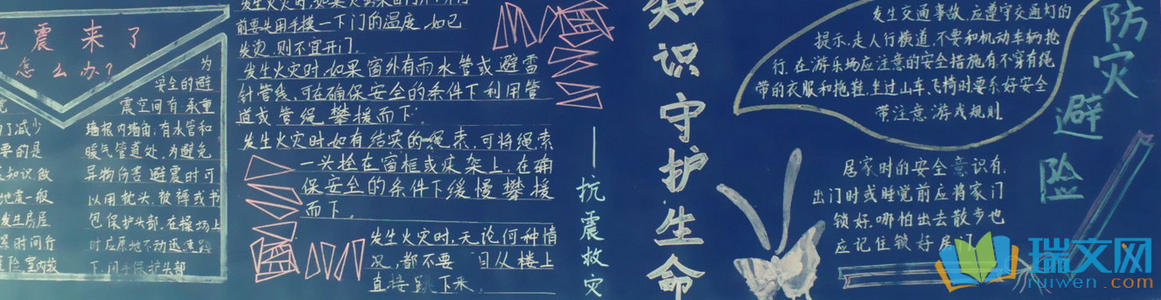 震来了
怎么办?
为
安全的避
震空间有承重
墙根内墙角,有水管和
暖气管道处,为避免
异物伤害避震时可
以用枕头,被褥或书
包保护头部,在操场上
时应原地不动迅速
下,
减少
要的是
知识,做
地震一般
发生房屋
时间
前要先用手摸一下门的温度,如已
发烫,则不宜开门.
发生火灾时,如果窗外有雨水管或避雷
针管线,可在确保安全的条件下利用管
道或管绳攀援而下.
发生火灾时如有结实的绳索,可将绳索
一头拴在窗框或床架上,在确
保安全的条件下缓慢攀援
而下.
发生火灾时,无论何种情
况,都不要 从楼上
直接跳下来.
抗震救灾
知识守护生命
发生交通事故,应遵守交通灯的
提示,走人行横道,不要和机动车辆抢
行.在游乐场应注意的安全措施有不穿有绳
带的衣服和拖鞋,坐过山车,飞椅时要系好安全
带注意游戏规则
防灾避险
居家时的安全意识有,
出门时或睡觉前应将家门
锁好,哪怕出去散步也
应记住锁好
瑞文网
ruiwen.com